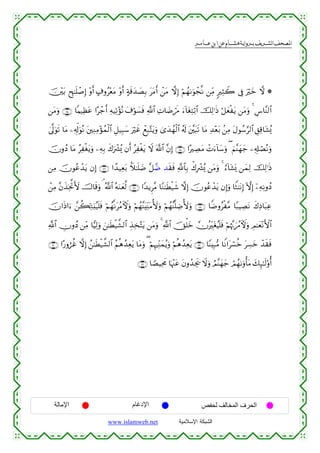 المصحف الشريف برواية هشام عن ابن عامر
* لَّا خَيْرَ فِى كَثِيرٍ مِّن نَّجْوَىٰهُمْ إِلَّا مَنْ أَمَرَ بِصَدَقَةٍ أَوْ مَعْرُوفٍ أَوْ إِصْلَٰحٍۭ بَيْنَ
ٱلنَّاسِ ۚ وَمَن يَفْعَلْ ذَٰلِكَ ٱبْتِغَآءَ مَرْضَاتِ ٱللَّهِ فَسَوْفَ نُؤْتِيهِ أَجْرًا عَظِيمًا وَمَن
يُشَاقِقِ ٱلرَّسُولَ مِنۢ بَعْدِ مَا تَبَيَّنَ لَهُ ٱلْهُدَىٰ وَيَتَّبِعْ غَيْرَ سَبِيلِ ٱلْمُؤْمِنِينَ نُوَلِّهِ مَا تَوَلَّىٰ
وَنُصْلِهِ جَهَنَّمَ ۖ وَسَآءَتْ مَصِيرًا إِنَّ ٱللَّهَ لَا يَغْفِرُ أَن يُشْرَكَ بِهِۦ وَيَغْفِرُ مَا دُونَ
ذَٰلِكَ لِمَن يَشَآءُ ۚ وَمَن يُشْرِكْ بِٱللَّهِ فَقَد ضَّلَّ ضَلَٰلًۢا بَعِيدًا إِن يَدْعُونَ مِن
دُونِهِۦٓ إِلَّآ إِنَٰثًا وَإِن يَدْعُونَ إِلَّا شَيْطَٰنًا مَّرِيدًا لَّعَنَهُ ٱللَّهُ ۘ وَقَالَ لَأَتَّخِذَنَّ مِنْ
عِبَادِكَ نَصِيبًا مَّفْرُوضًا وَلَأُضِلَّنَّهُمْ وَلَأُمَنِّيَنَّهُمْ وَلَءَامُرَنَّهُمْ فَلَيُبَتِّكُنَّ ءَاذَانَ
ٱلْأَنْعَٰمِ وَلَءَامُرَنَّهُمْ فَلَيُغَيِّرُنَّ خَلْقَ ٱللَّهِ ۚ وَمَن يَتَّخِذِ ٱلشَّيْطَٰنَ وَلِيًّا مِّن دُونِ ٱللَّهِ
فَقَدْ خَسِرَ خُسْرَانًا مُّبِينًا يَعِدُهُمْ وَيُمَنِّيهِمْ ۖ وَمَا يَعِدُهُمُ ٱلشَّيْطَٰنُ إِلَّا غُرُورًا
أُو۟لَٰٓئِكَ مَأْوَىٰهُمْ جَهَنَّمُ وَلَا يَجِدُونَ عَنْهَا مَحِيصًا
الحرف المخالف لحفص الإدغام الإمالة
الشبكة الإسلامية www.islamweb.net